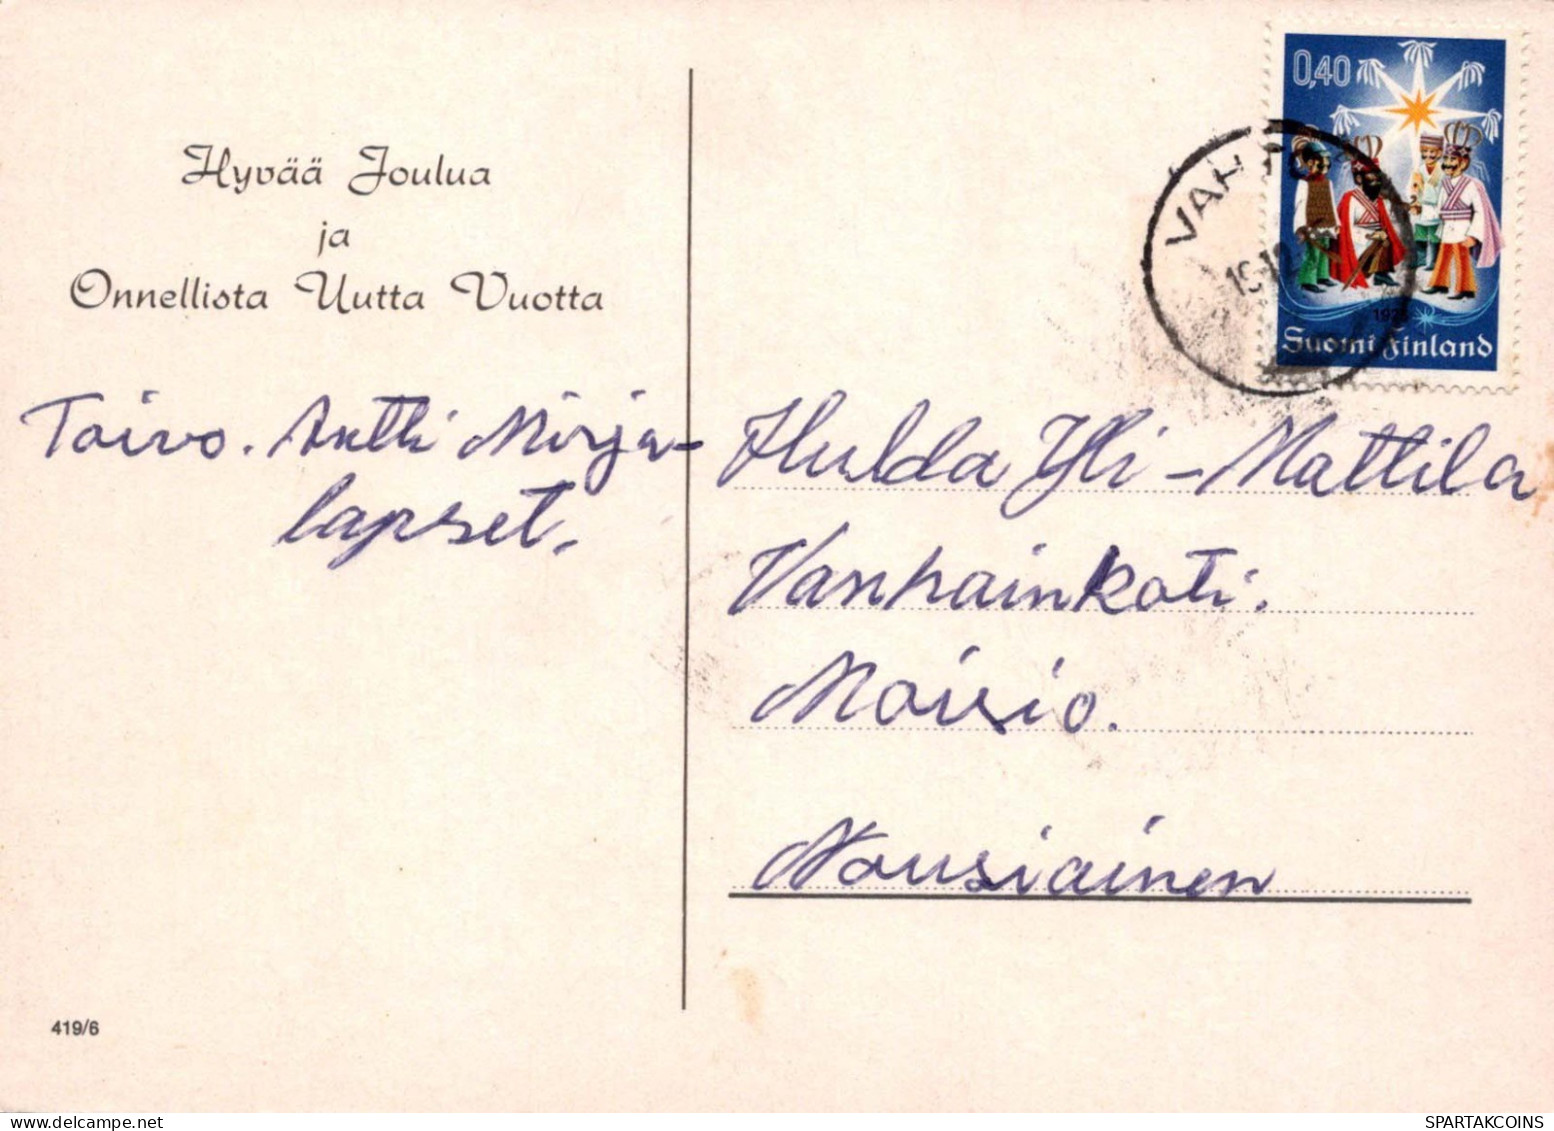 Hyvää Joulua
ja
Onnellista Uutta Vuotta
Toivo. Antti Mirja-
lapset.
419/6
0,40
VAHTO
Suomi Finland
Hulda Yli-Mattila
Vanhainkoti.
Moisio.
Nousiainen
SPARTAKCOINS